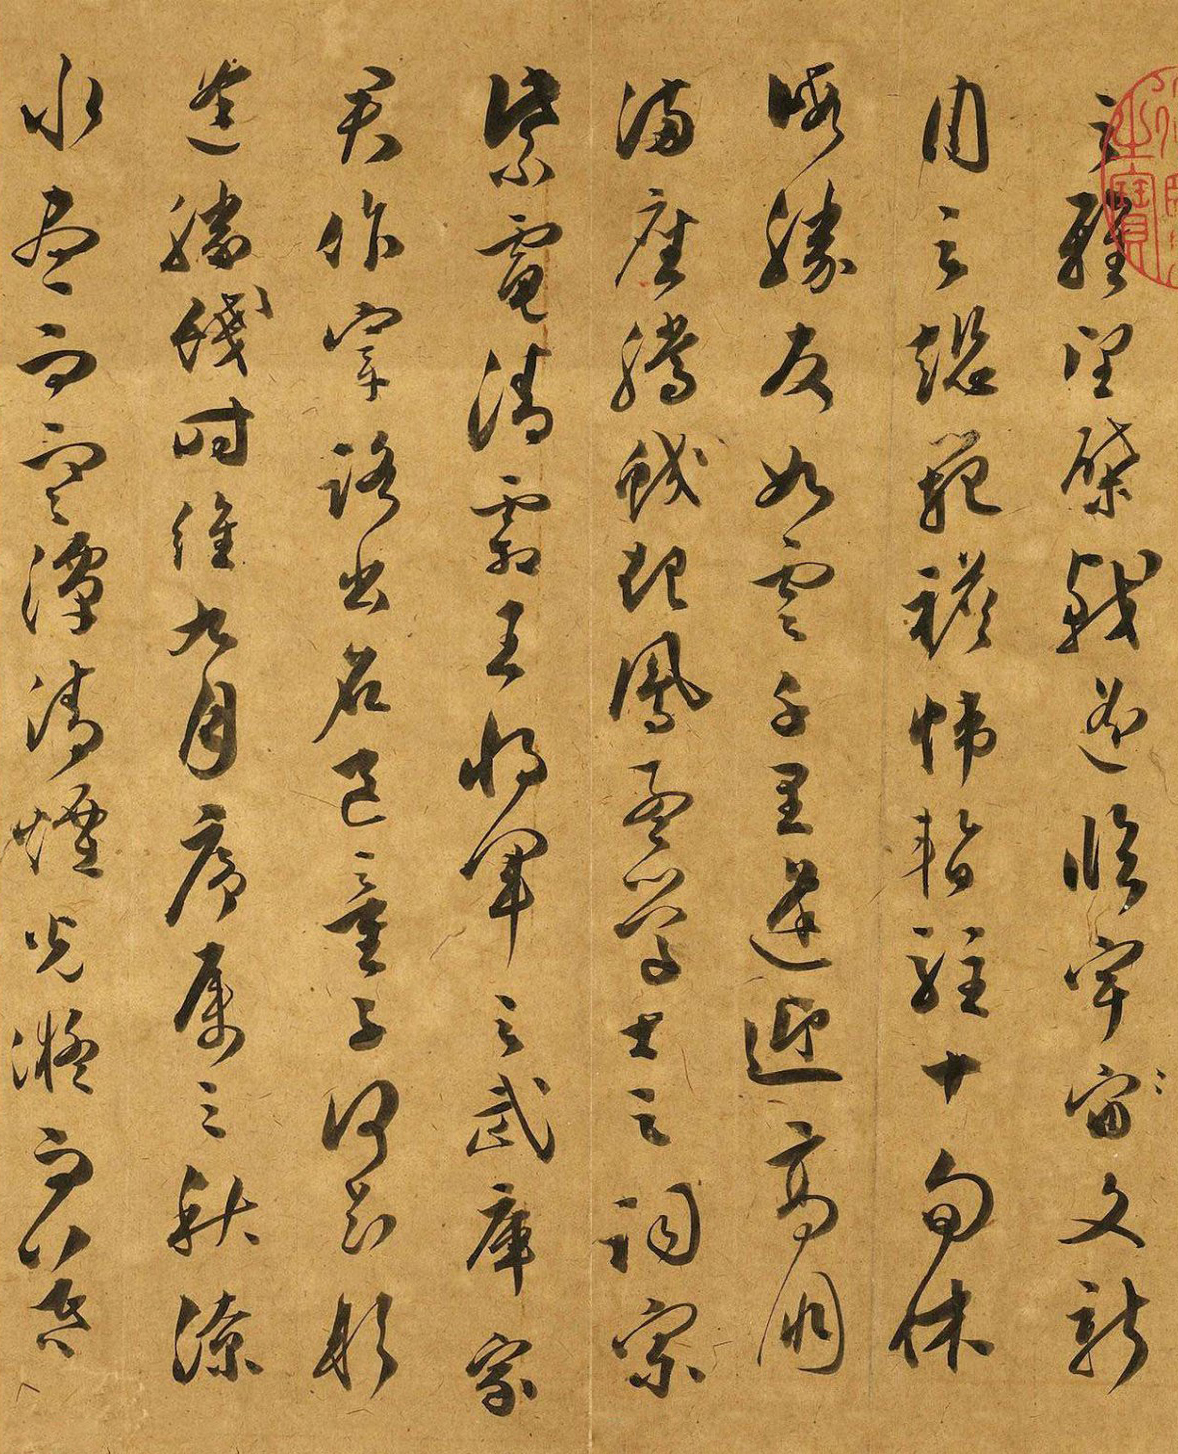 之雅望棨戟遥臨宇宙文新
周之懿範襜帷暫駐十旬休
暇勝友如雲千里逢迎高朋
滿座騰蛟起鳳孟學士之詞宗
紫電清霜王將軍之武庫家
君作宰路出名區童子何知躬
逢勝餞時維九月序屬三秋潦
水盡而寒潭清煙光凝而暮
之寶